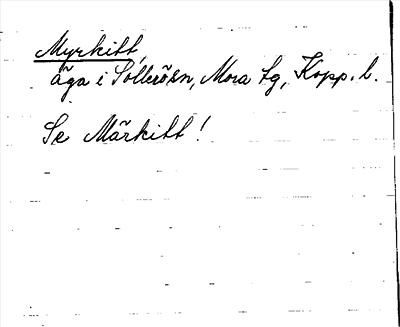 Myrkitt,
äga i Sollerön, Mora tg, Kopp. l.
Se Märkitt!